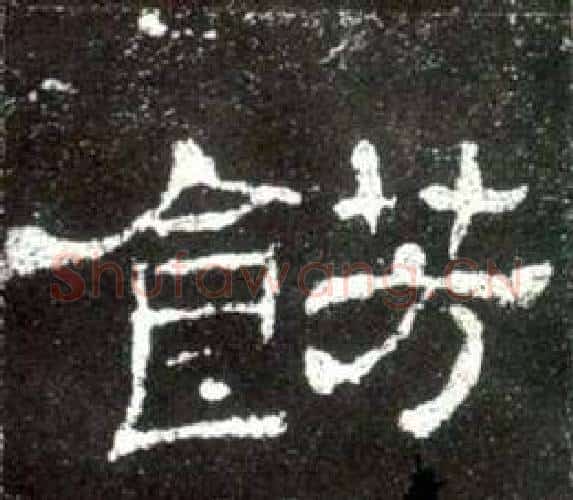 餝
Shufawang.CN